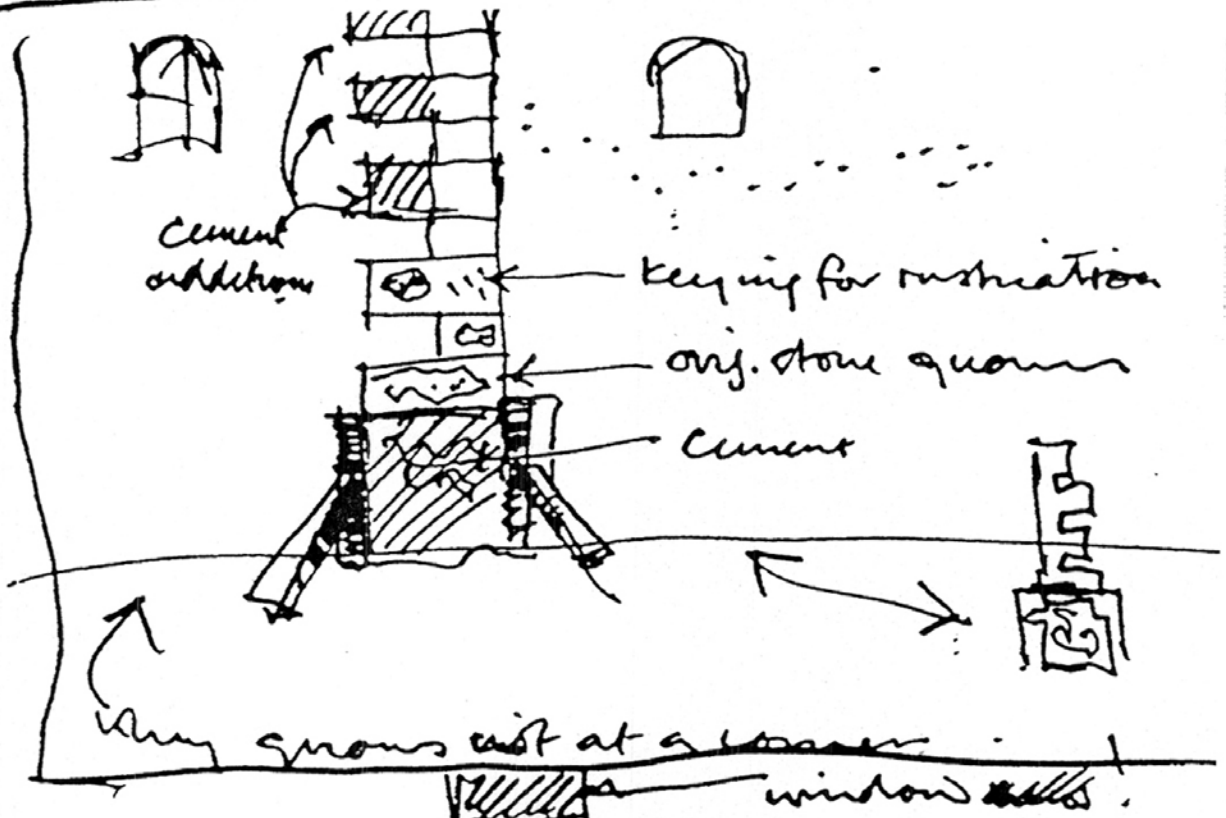 cement
additions
keying for rustication
orig. stone quoins
cement
why quoins not at a corner.
window